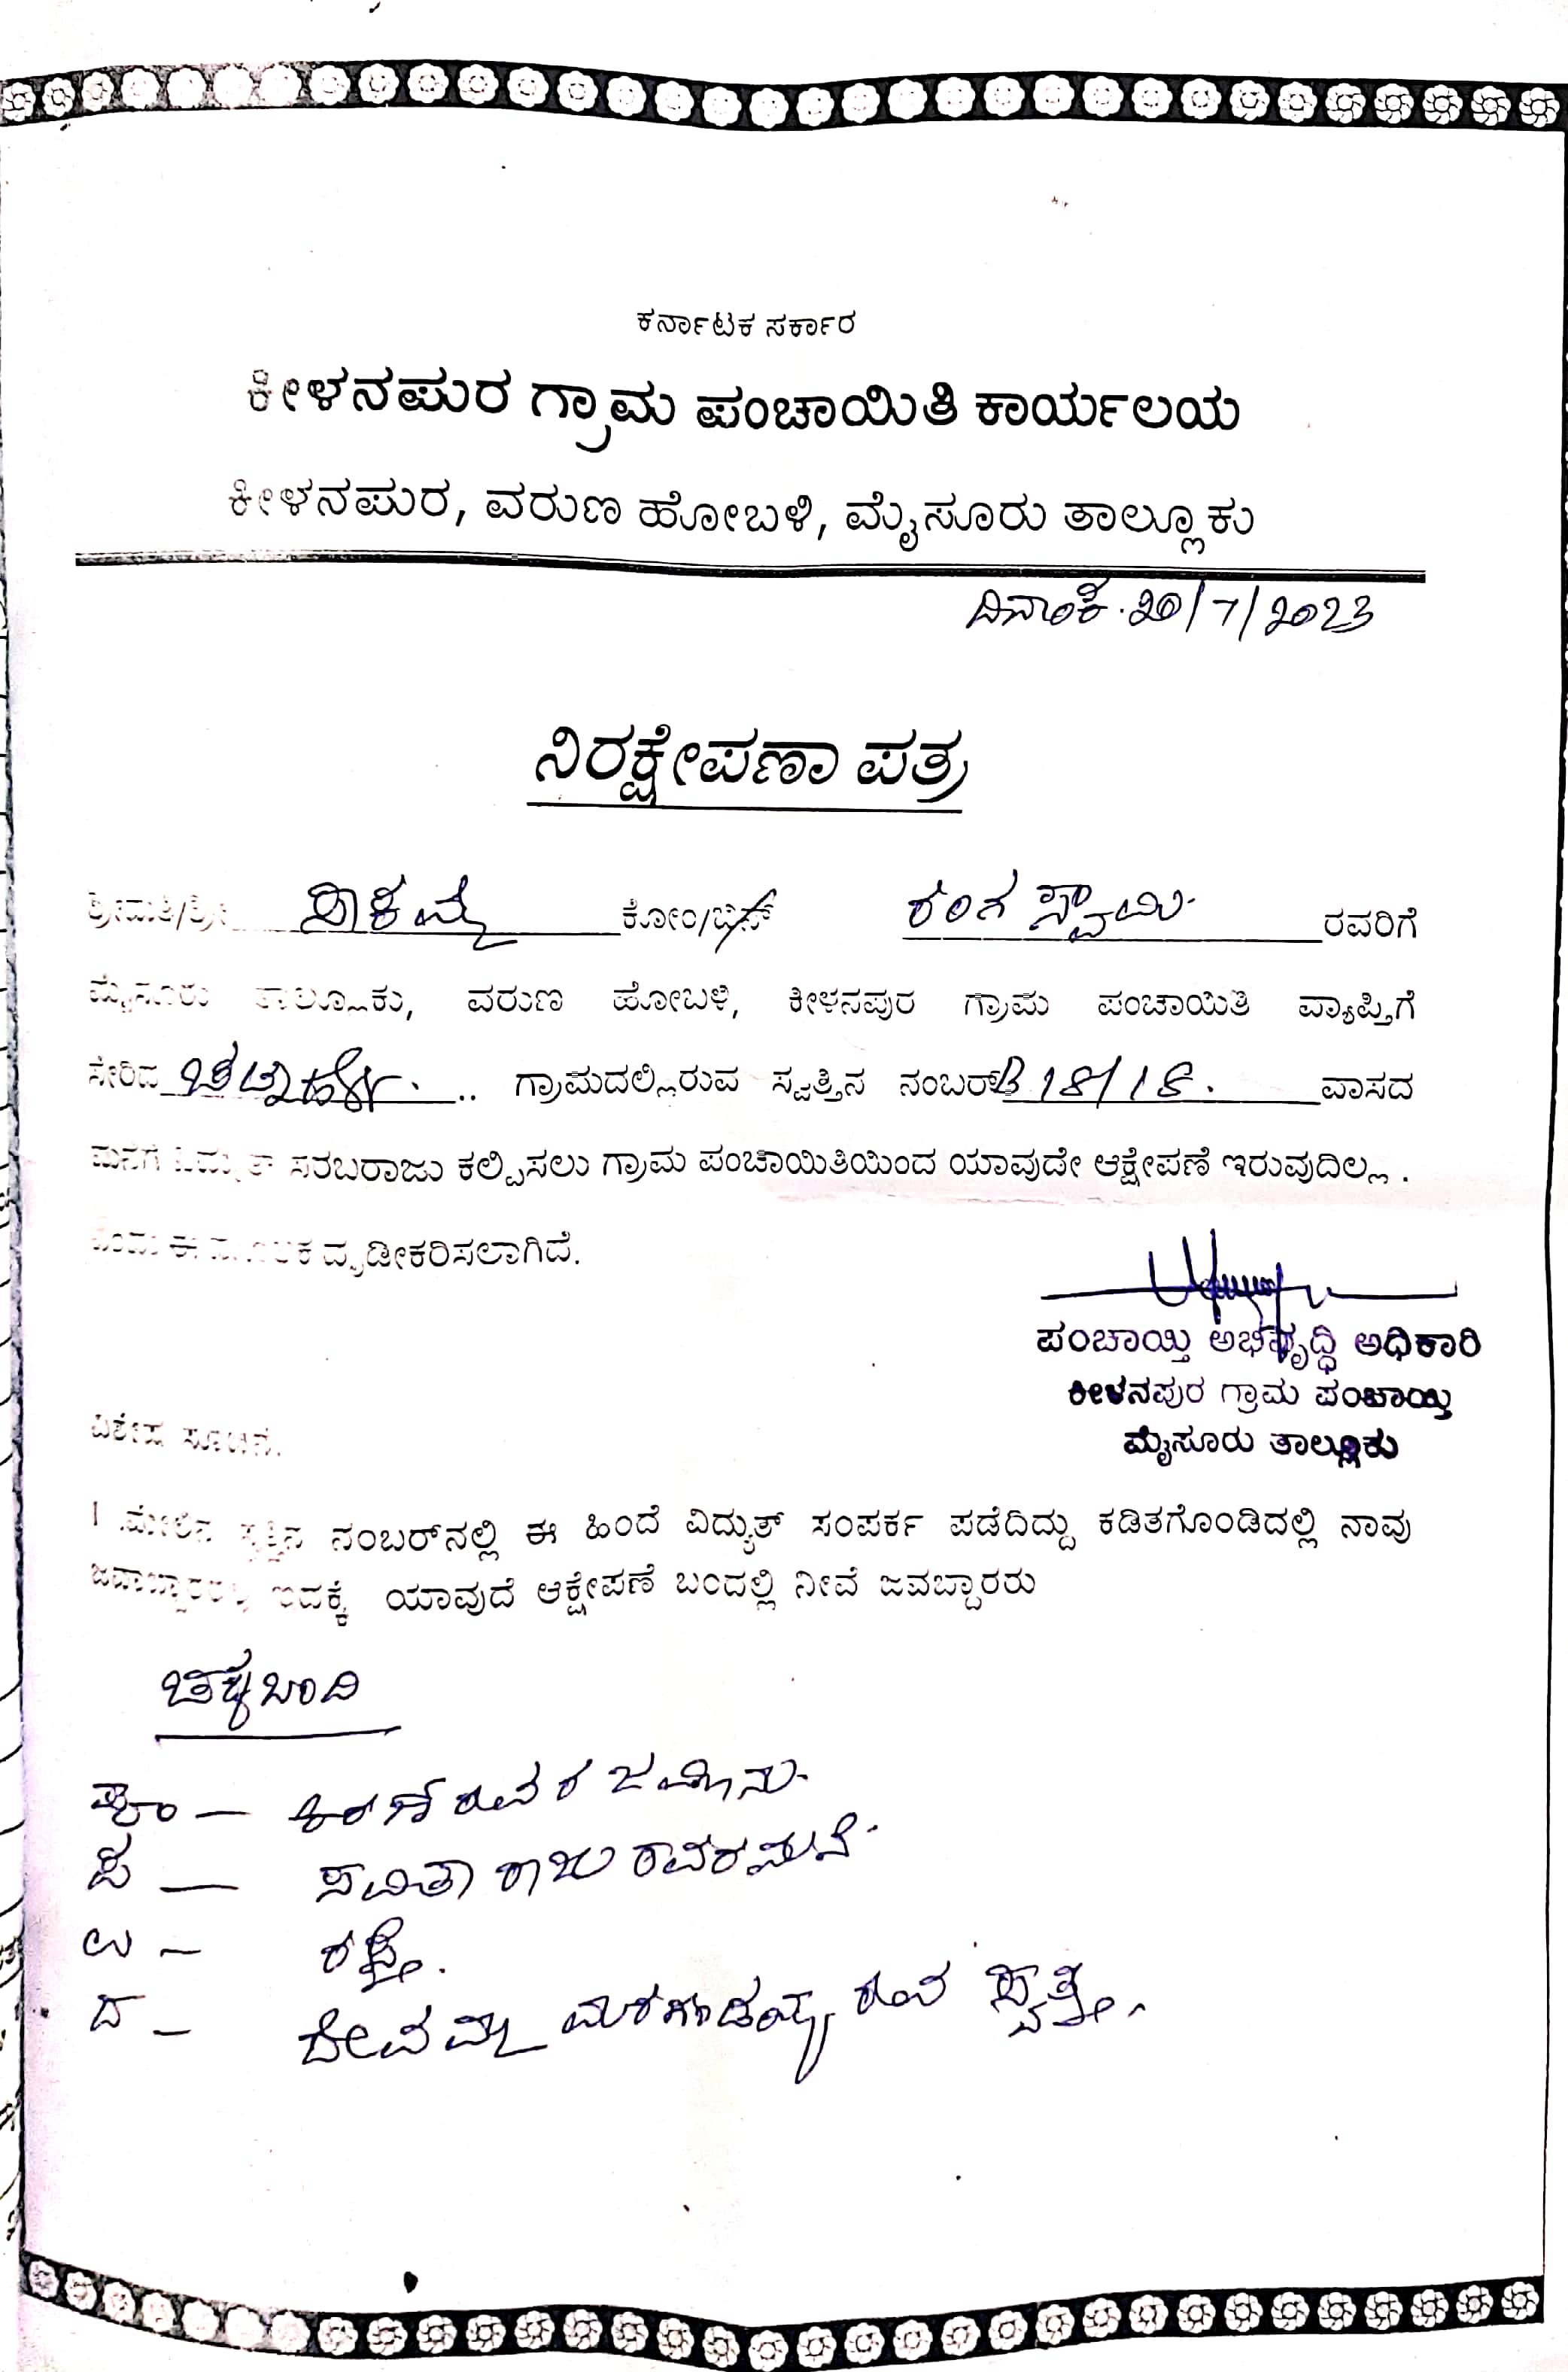 ಕರ್ನಾಟಕ ಸರ್ಕಾರ
ಕೀಳನಪುರ ಗ್ರಾಮ ಪಂಚಾಯಿತಿ ಕಾರ್ಯಲಯ
ಕೀಳನಪುರ, ವರುಣ ಹೋಬಳಿ, ಮೈಸೂರು ತಾಲ್ಲೂಕು
ದಿನಾಂಕ. 20/7/2023
ನಿರಕ್ಷೇಪಣಾ ಪತ್ರ
ಶ್ರೀಮತಿ/ಶ್ರೀ ಕೋಂ/ಬಿನ್ ರಂಗಸ್ವಾಮಿ ರವರಿಗೆ
ಮೈಸೂರು ತಾಲ್ಲೂಕು, ವರುಣ ಹೋಬಳಿ, ಕೀಳನಪುರ ಗ್ರಾಮ ಪಂಚಾಯಿತಿ ವ್ಯಾಪ್ತಿಗೆ
ಸೇರಿದ .. ಗ್ರಾಮದಲ್ಲಿರುವ ಸ್ವತ್ತಿನ ನಂಬರ್ 18/18. ವಾಸದ
ಮನೆಗೆ ಸರಬರಾಜು ಕಲ್ಪಿಸಲು ಗ್ರಾಮ ಪಂಚಾಯಿತಿಯಿಂದ ಯಾವುದೇ ಆಕ್ಷೇಪಣೆ ಇರುವುದಿಲ್ಲ .
ಎಂದು ಈ ಮೂಲಕ ದೃಡೀಕರಿಸಲಾಗಿದೆ.
ಪಂಚಾಯ್ತಿ ಅಭಿವೃದ್ಧಿ ಅಧಿಕಾರಿ
ಕೀಳನಪುರ ಗ್ರಾಮ ಪಂಚಾಯ್ತಿ
ಮೈಸೂರು ತಾಲ್ಲೂಕು
ವಿಶೇಷ ಸೂಚನೆ.
1 .ಮೇಲಿನ ಸ್ವತ್ತಿನ ನಂಬರ್‌ನಲ್ಲಿ ಈ ಹಿಂದೆ ವಿದ್ಯುತ್ ಸಂಪರ್ಕ ಪಡೆದಿದ್ದು ಕಡಿತಗೊಂಡಿದಲ್ಲಿ ನಾವು
ಇದಕ್ಕೆ ಯಾವುದೆ ಆಕ್ಷೇಪಣೆ ಬಂದಲ್ಲಿ ನೀವೆ ಜವಬ್ದಾರರು
ಚಕ್ಕಬಂದಿ
ಪೂ — ರವರ ಜಮೀನು.
ಪ — ಸವಿತಾ ರಾಜು ರವರ ಮನೆ.
ಉ — ರಸ್ತೆ.
ದ — ರವರ ಸ್ವತ್ತು.